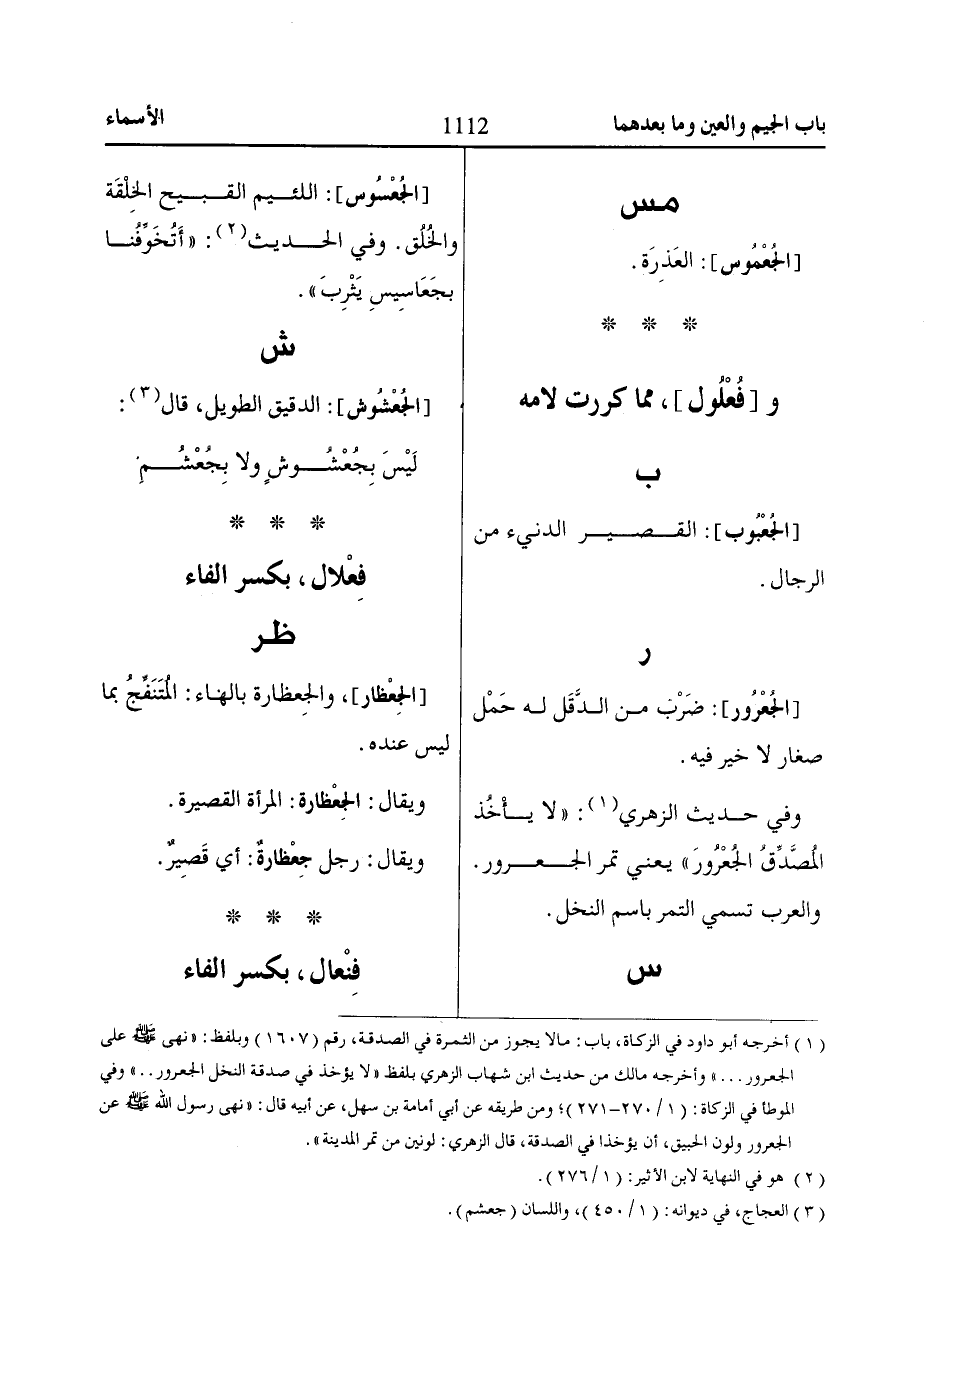 باب الجيم والعين وما بعدهما
1112
الأسماء
مس
[الجُعْمُوس]: العَذِرَة.
* * *
و [فُعْلُول]، مما كررت لامه
ب
[الجُعْبُوب]: القصير الدنيء من
الرجال.
ر
[الجُعْرُور]: ضَرْبٌ من الدَّقَل له حَمْل
صغار لا خير فيه.
وفي حديث الزهري(١): «لا يأْخُذ
المُصَّدِّقُ الجُعْرُورَ» يعني تمر الجعرور.
والعرب تسمي التمر باسم النخل.
س
[الجُعْسُوس]: اللئيم القبيح الخِلْقَة
والخُلُق. وفي الحديث(٢): «أَتُخَوِّفُنا
بجَعَاسِيسِ يَثْرِبَ».
ش
[الجُعْشُوش]: الدقيق الطويل، قال(٣):
لَيْسَ بِجُعْشُوشٍ ولا بِجُعْشُمِ
* * *
فِعْلال، بكسر الفاء
ظر
[الجِعْظار]، والجِعظارة بالهاء: المُتَنَفِّجُ بما
ليس عنده.
ويقال: الجِعْظارة: المرأة القصيرة.
ويقال: رجل جِعْظارةٌ: أي قَصِيرٌ.
* * *
فِنْعال، بكسر الفاء
(١) أخرجه أبو داود في الزكاة، باب: مالا يجوز من الثمرة في الصدقة، رقم (١٦٠٧) وبلفظ: «نهى ﷺ على
الجعرور...» وأخرجه مالك من حديث ابن شهاب الزهري بلفظ «لا يؤخذ في صدقة النخل الجعرور..» وفي
الموطأ في الزكاة: (١/ ٢٧٠-٢٧١)؛ ومن طريقه عن أبي أمامة بن سهل، عن أبيه قال: «نهى رسول الله ﷺ عن
الجعرور ولون الحبيق، أن يؤخذا في الصدقة، قال الزهري: لونين من تمر المدينة».
(٢) هو في النهاية لابن الأثير: (١/ ٢٧٦).
(٣) العجاج، في ديوانه: (١/ ٤٥٠)، واللسان (جعشم).